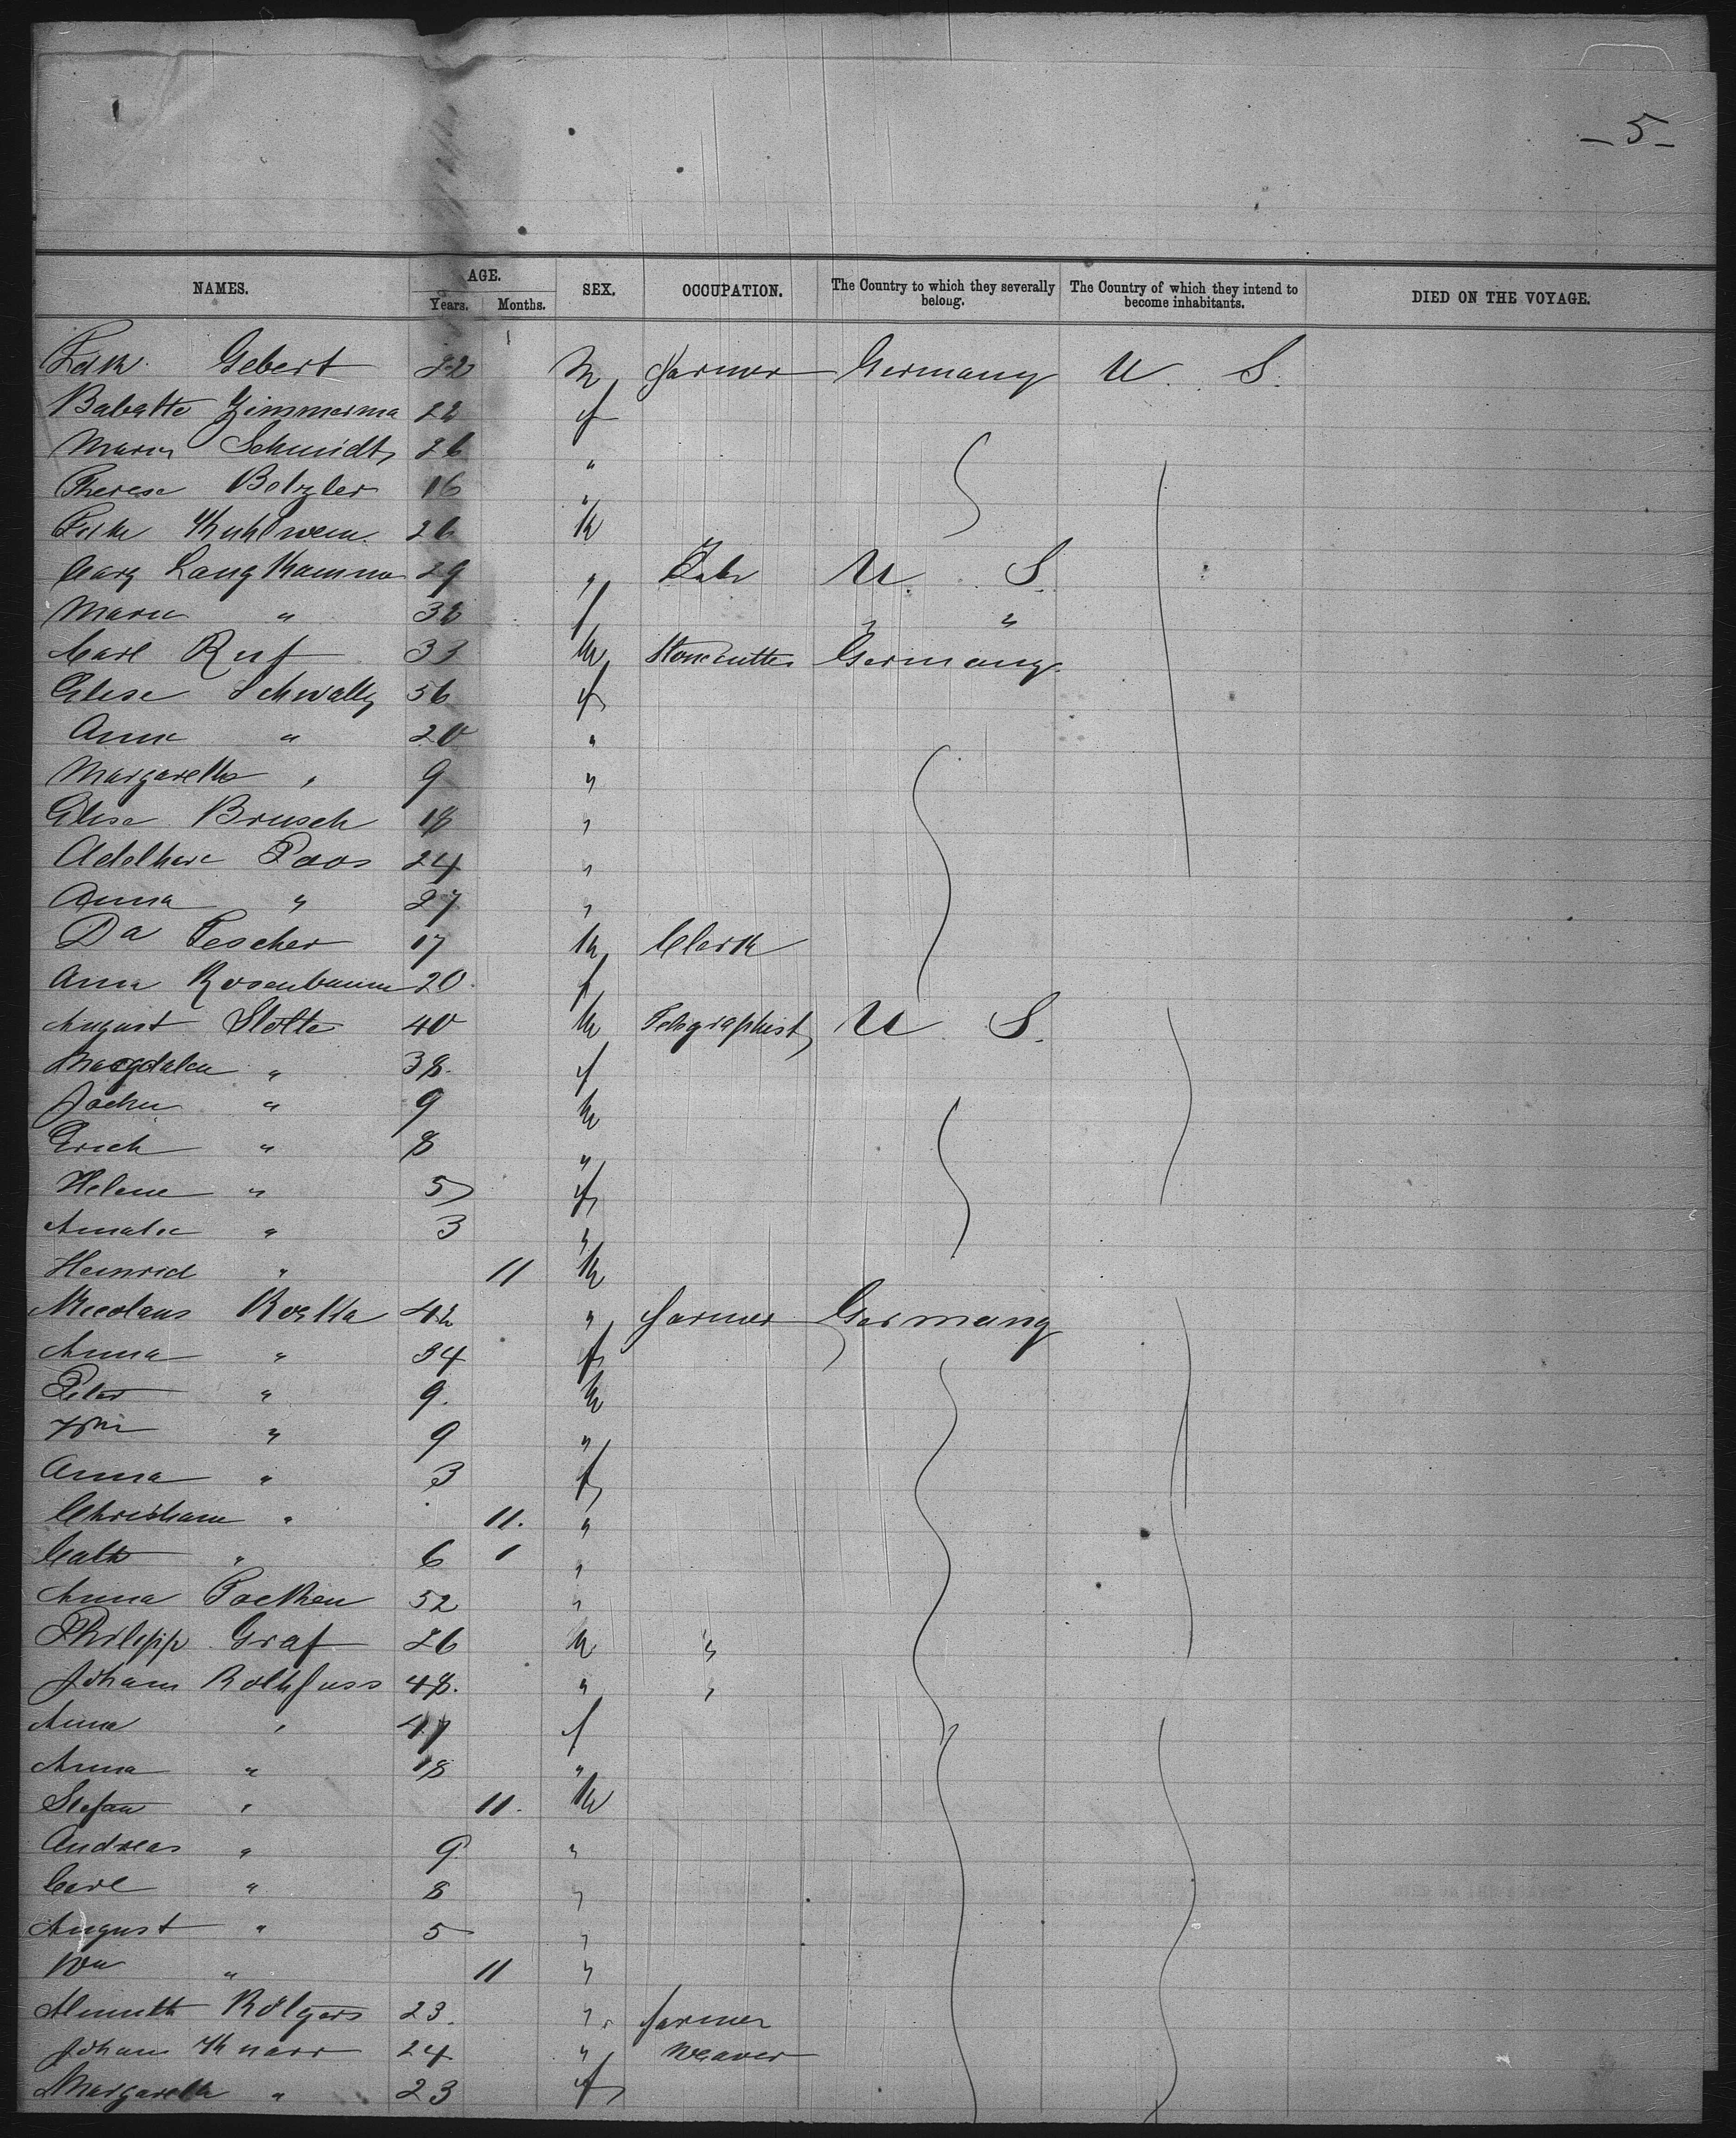 - 5 -
NAMES. AGE. Years. Months. SEX. OCCUPATION. The Country to which they severally belong. The Country of which they intend to become inhabitants. DIED ON THE VOYAGE.
Gebert M farmer Germany U. S.
Babatte Zimmerma 22 f
Maria Schmidt 26 "
Therese 16 "
26 M
Lang 29 " U. S.
Marie " 32 f " "
Carl Ruf 33 M Stonecutter Germany
Elise Schwally 56 f
Anna " 20 "
Margaretha " 9 "
Elise Brusch 18 "
Paos 24 "
Anna " 27 "
Da Tescher 17 M Clerk
Anna Rosenbaum 20 f
August Stolte 40 M Telegraphist U. S.
Magdalen " 38 f
" 9 M
Erich " 8 "
Helene " 5 f
Amalie " 3 "
Heinrich " 11 M
Nicolaus 42 " farmer Germany
Anna " 34 f
Peter " 9 M
Wm " 9 "
Anna " 3 f
Christiane " 11 "
Cath " 6 "
Anna 52 "
Philipp Graf 26 M "
Johann Rothfuss 48 " "
Anna " 47 f
Anna " 18 "
Stefan " 11 M
Andreas " 9 "
Carl " 8 "
August " 5 "
Wm " 11 "
Rölgers 23 " farmer
Johann Knarr 24 " Weaver
Margareth " 23 f